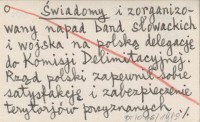 o Świadomy i zorganizo-
wany napad band słowackich
i wojska na polską delegację
do Komisji Delimitacyjnej.
Rząd polski zapewnił sobie
satysfakcję i zabezpieczenie
terytorjów przyznanych